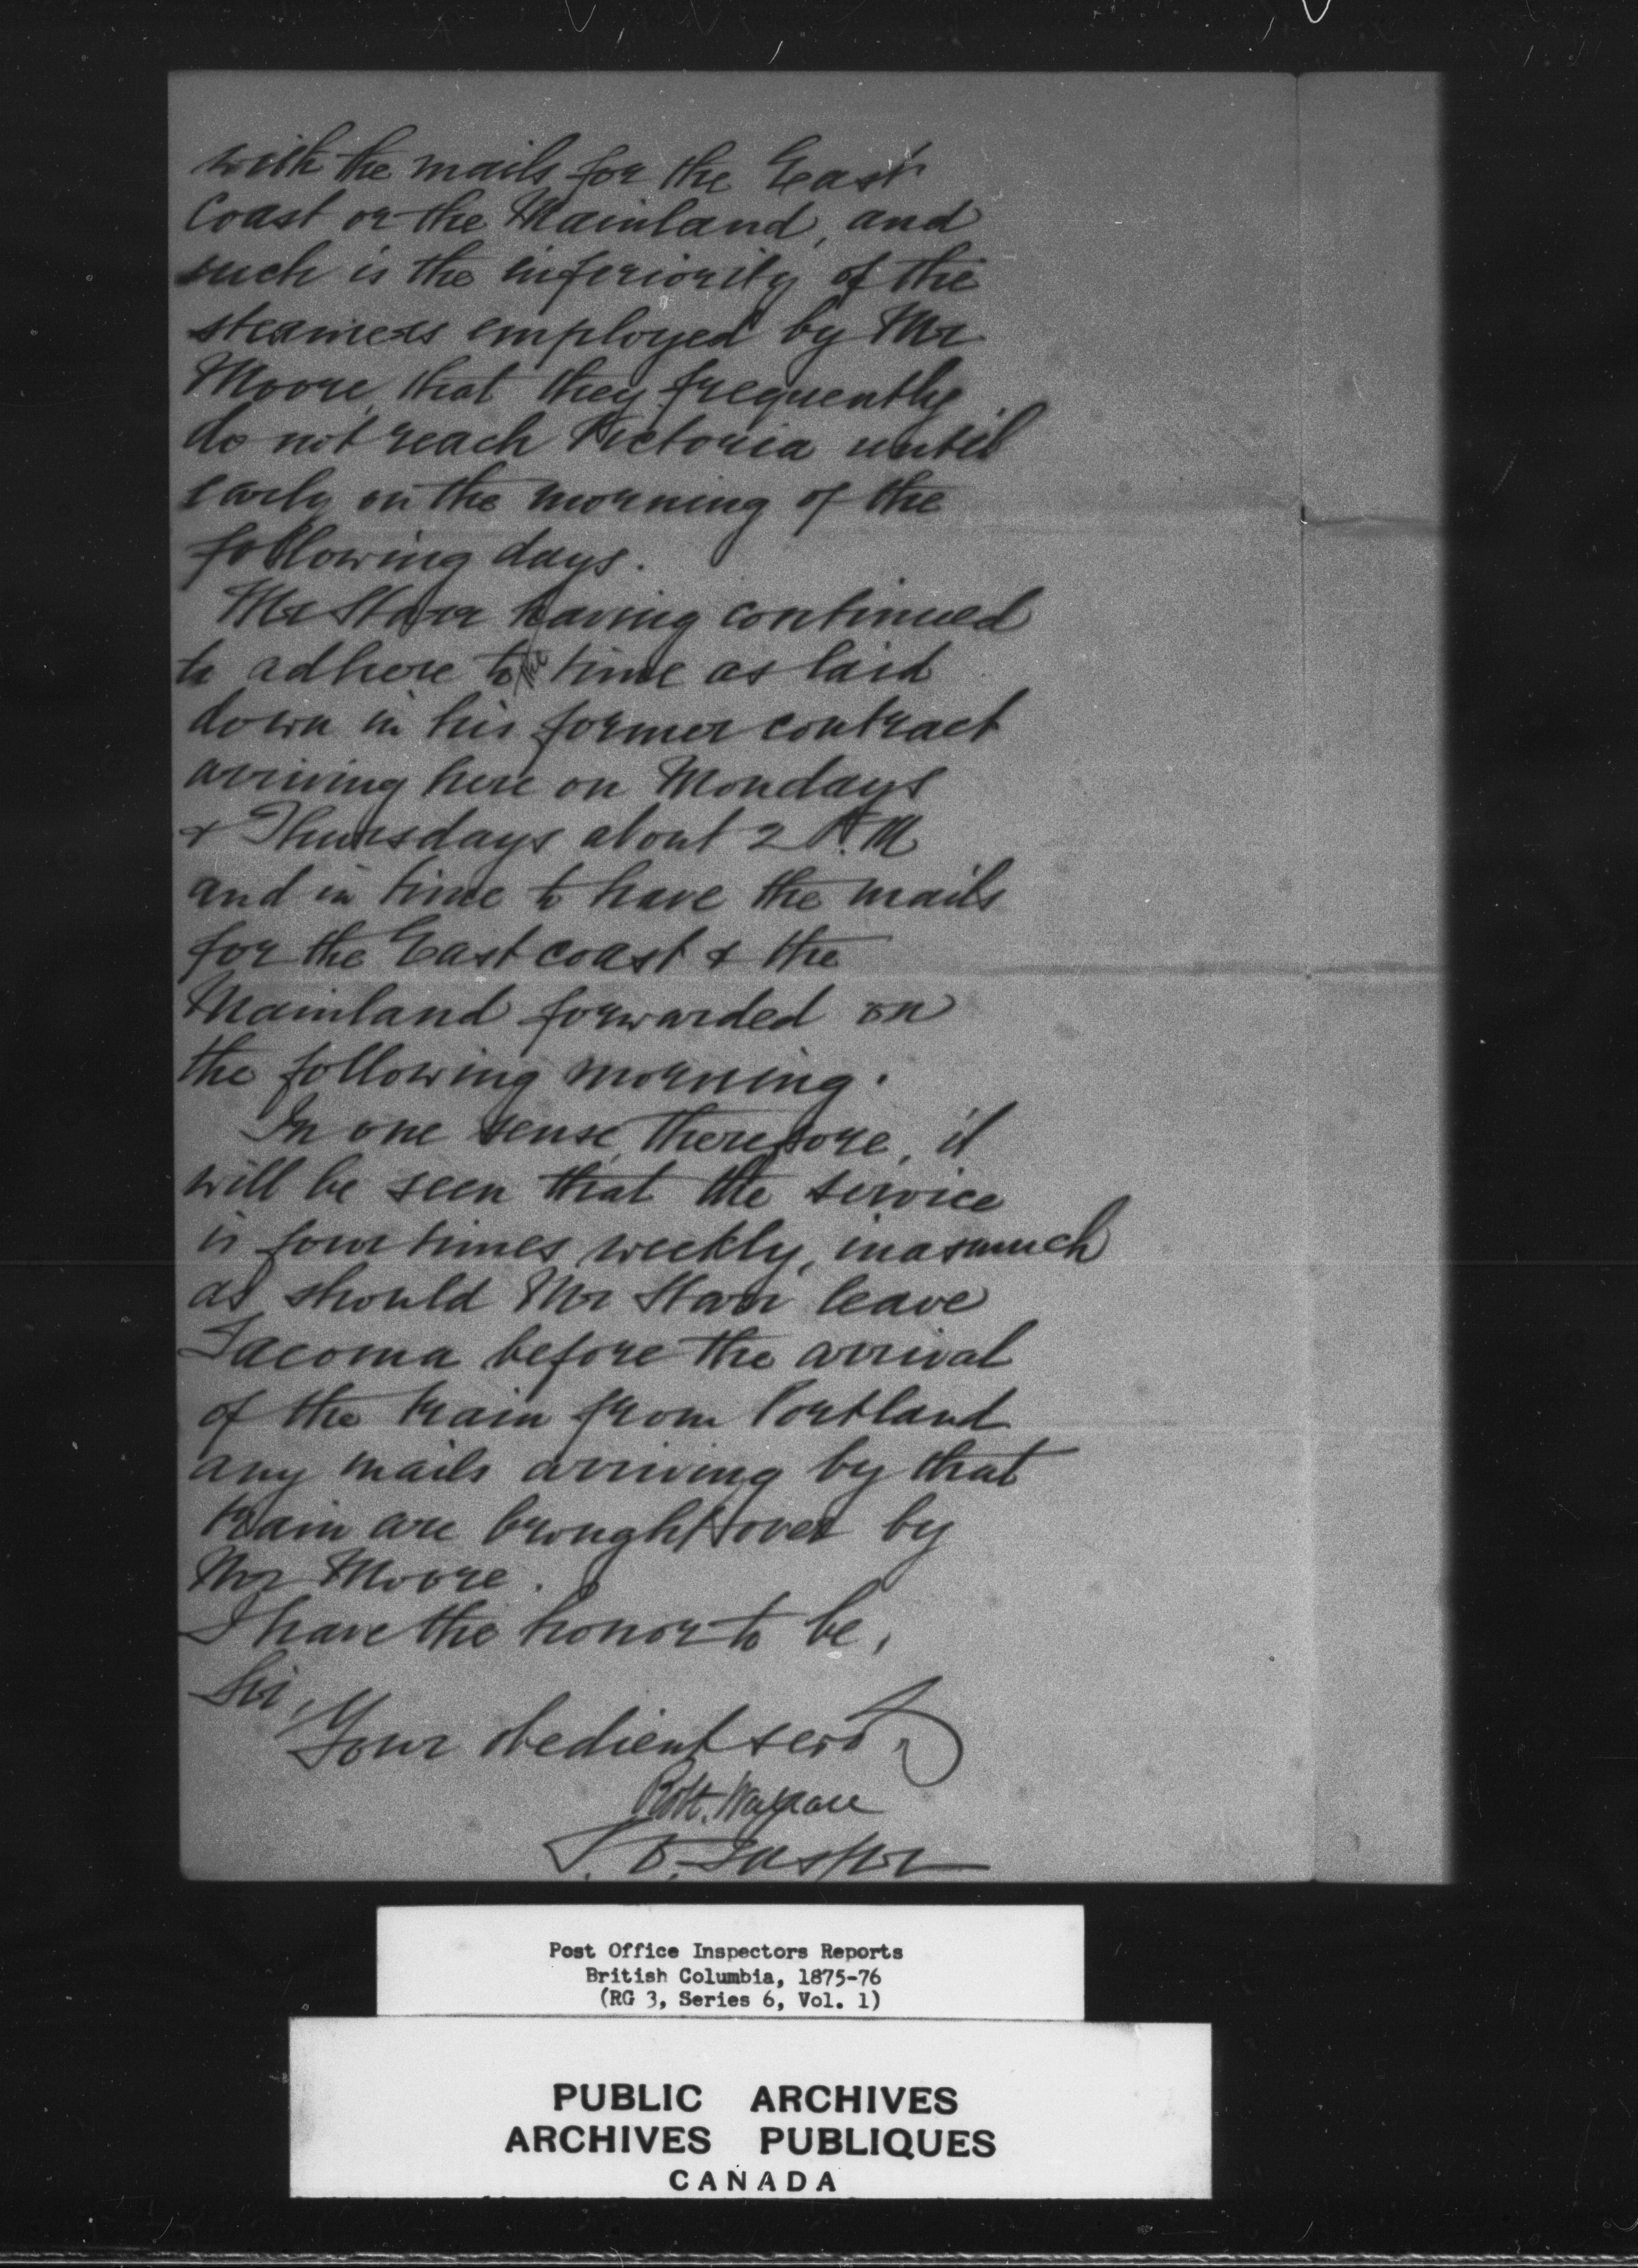 with the mails for the East
Coast or the Mainland, and
such is the inferiority of the
steamers employed by Mr
Moore, that they frequently
do not reach Victoria until
early on the morning of the
following days.
Mr Starr having continued
to adhere to the time as laid
down in his former contract
arriving here on Mondays
& Thursdays about 2 P.M.
and in time to have the mails
for the East coast & the
Mainland forwarded on
the following morning.
In one sense, therefore, it
will be seen that the service
is four times weekly, inasmuch
as should Mr Starr leave
Tacoma before the arrival
of the train from Portland
any mails arriving by that
train are brought over by
Mr Moore.
I have the honor to be,
Sir,
Your obedient servt
Robt. Wallace
P. O. Inspor
Post Office Inspectors Reports
British Columbia, 1875-76
(RG 3, Series 6, Vol. 1)
PUBLIC ARCHIVES
ARCHIVES PUBLIQUES
CANADA